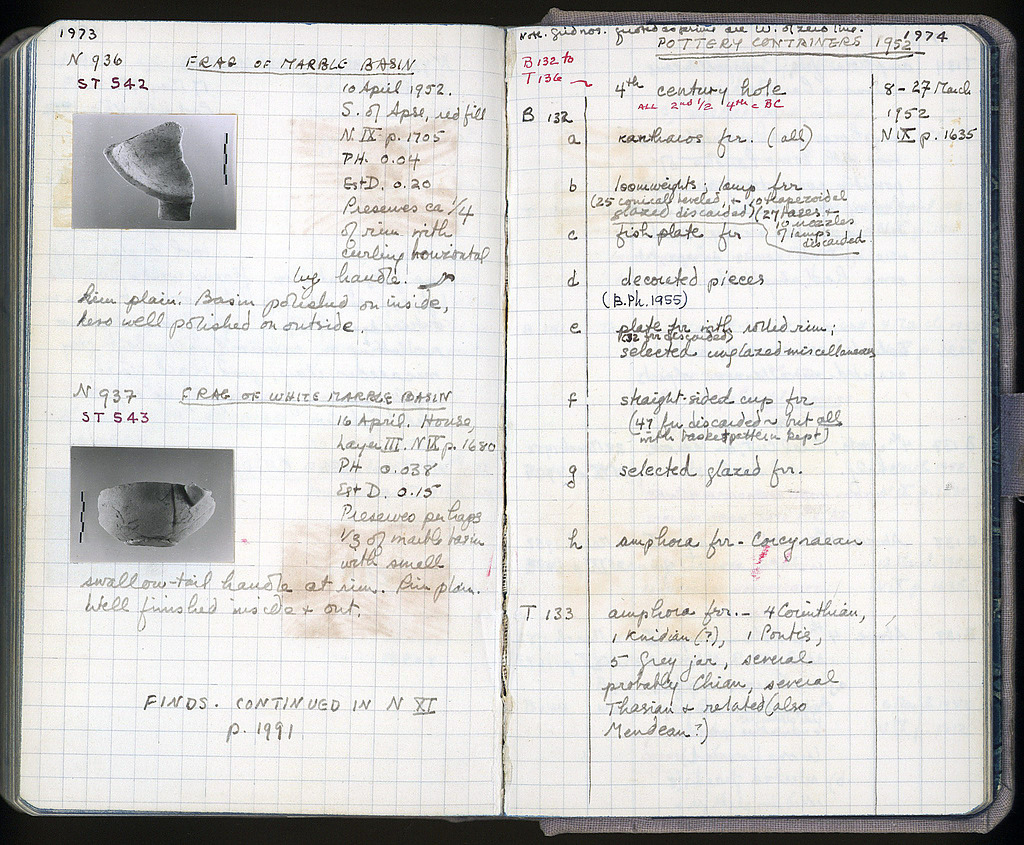 1973
N 936 FRAG OF MARBLE BASIN
ST 542
10 April 1952.
S. of Apse, red fill
N IX p. 1705
PH. 0.04
Est D. 0.20
Preserves ca 1/4
of rim with
curling horizontal
lug handle.
Rim plain. Basin polished on inside,
less well polished on outside.
N 937 FRAG OF WHITE MARBLE BASIN
ST 543
16 April. House,
Layer III. N IX p. 1680
PH 0.038
Est D. 0.15
Preserves perhaps
1/3 of marble basin
with small
swallow-tail handle at rim. Rim plain.
Well finished inside + out.
FINDS. CONTINUED IN N XI
p. 1991
Note. Grid nos. quoted as prime are W. of zero line.
1974
POTTERY CONTAINERS 1952
B 132 to
T 136
4th century hole
ALL 2nd 1/2 4th c BC
8-27 March
1952
N IX p. 1635
B 132
a kantharos frr. (all)
b loomweights; lamp frr
(25 conical beveled, + 10 trapezoidal
glazed discarded) (27 bases +
10 nozzles
7 lamps
discarded
c fish plate frr
d decorated pieces
(B.Ph. 1955)
e plate frr with rolled rim;
(32 frr discarded)
selected unglazed miscellaneous
f straight-sided cup frr
(47 frr discarded - but all
with basket pattern kept)
g selected glazed frr.
h amphora frr - Corcyraean
T 133 amphora frr. - 4 Corinthian,
1 Knidian (?), 1 Pontic,
5 Grey jar, several
probably Chian, several
Thasian + related (also
Mendean?)